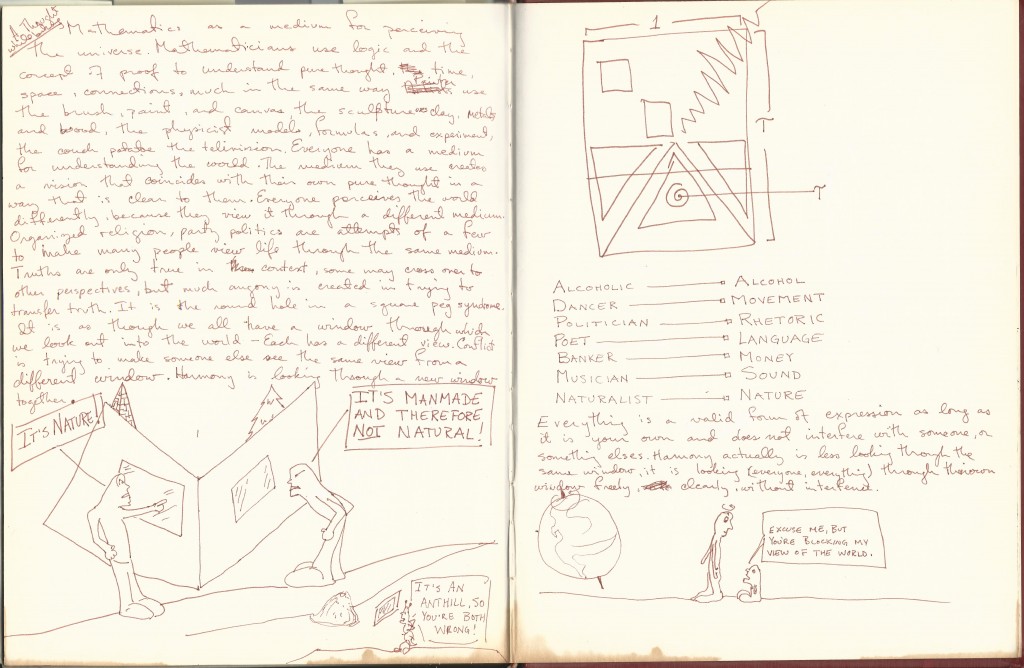 A Thought
while writing
Mathematics as a medium for perceiving
the universe. Mathematicians use logic and the
concept of proof to understand pure thought, time,
space, connections, much in the same way Painter use
the brush, paint, and canvas, the sculpture clay, metals
and wood, the physicist models, formulas, and experiment,
the couch potatoe the television. Everyone has a medium
for understanding the world. The medium they use creates
a vision that coincides with their own pure thought in a
way that is clear to them. Everyone perceives the world
differently, because they view it through a different medium.
Organized religion, party politics are attempts of a few
to make many people view life through the same medium.
Truths are only true in context, some may cross over to
other perspectives, but much angony is created in trying to
transfer truth. It is the round hole in a square peg syndrome.
It is as though we all have a window through which
we look out into the world - Each has a different view. Conflict
is trying to make someone else see the same view from a
different window. Harmony is looking through a new window
together.
IT'S NATURE!
IT'S MANMADE
AND THEREFORE
NOT NATURAL!
IT'S AN
ANTHILL, SO
YOU'RE BOTH
WRONG!
1
T
T
ALCOHOLIC ALCOHOL
DANCER MOVEMENT
POLITICIAN RHETORIC
POET LANGUAGE
BANKER MONEY
MUSICIAN SOUND
NATURALIST NATURE
Everything is a valid form of expression as long as
it is your own and does not interfere with someone, or
something elses. Harmony actually is less looking through the
same window, it is looking (everyone, everything) through their own
window freely, clearly, without interfence.
EXCUSE ME, BUT
YOU'RE BLOCKING MY
VIEW OF THE WORLD.